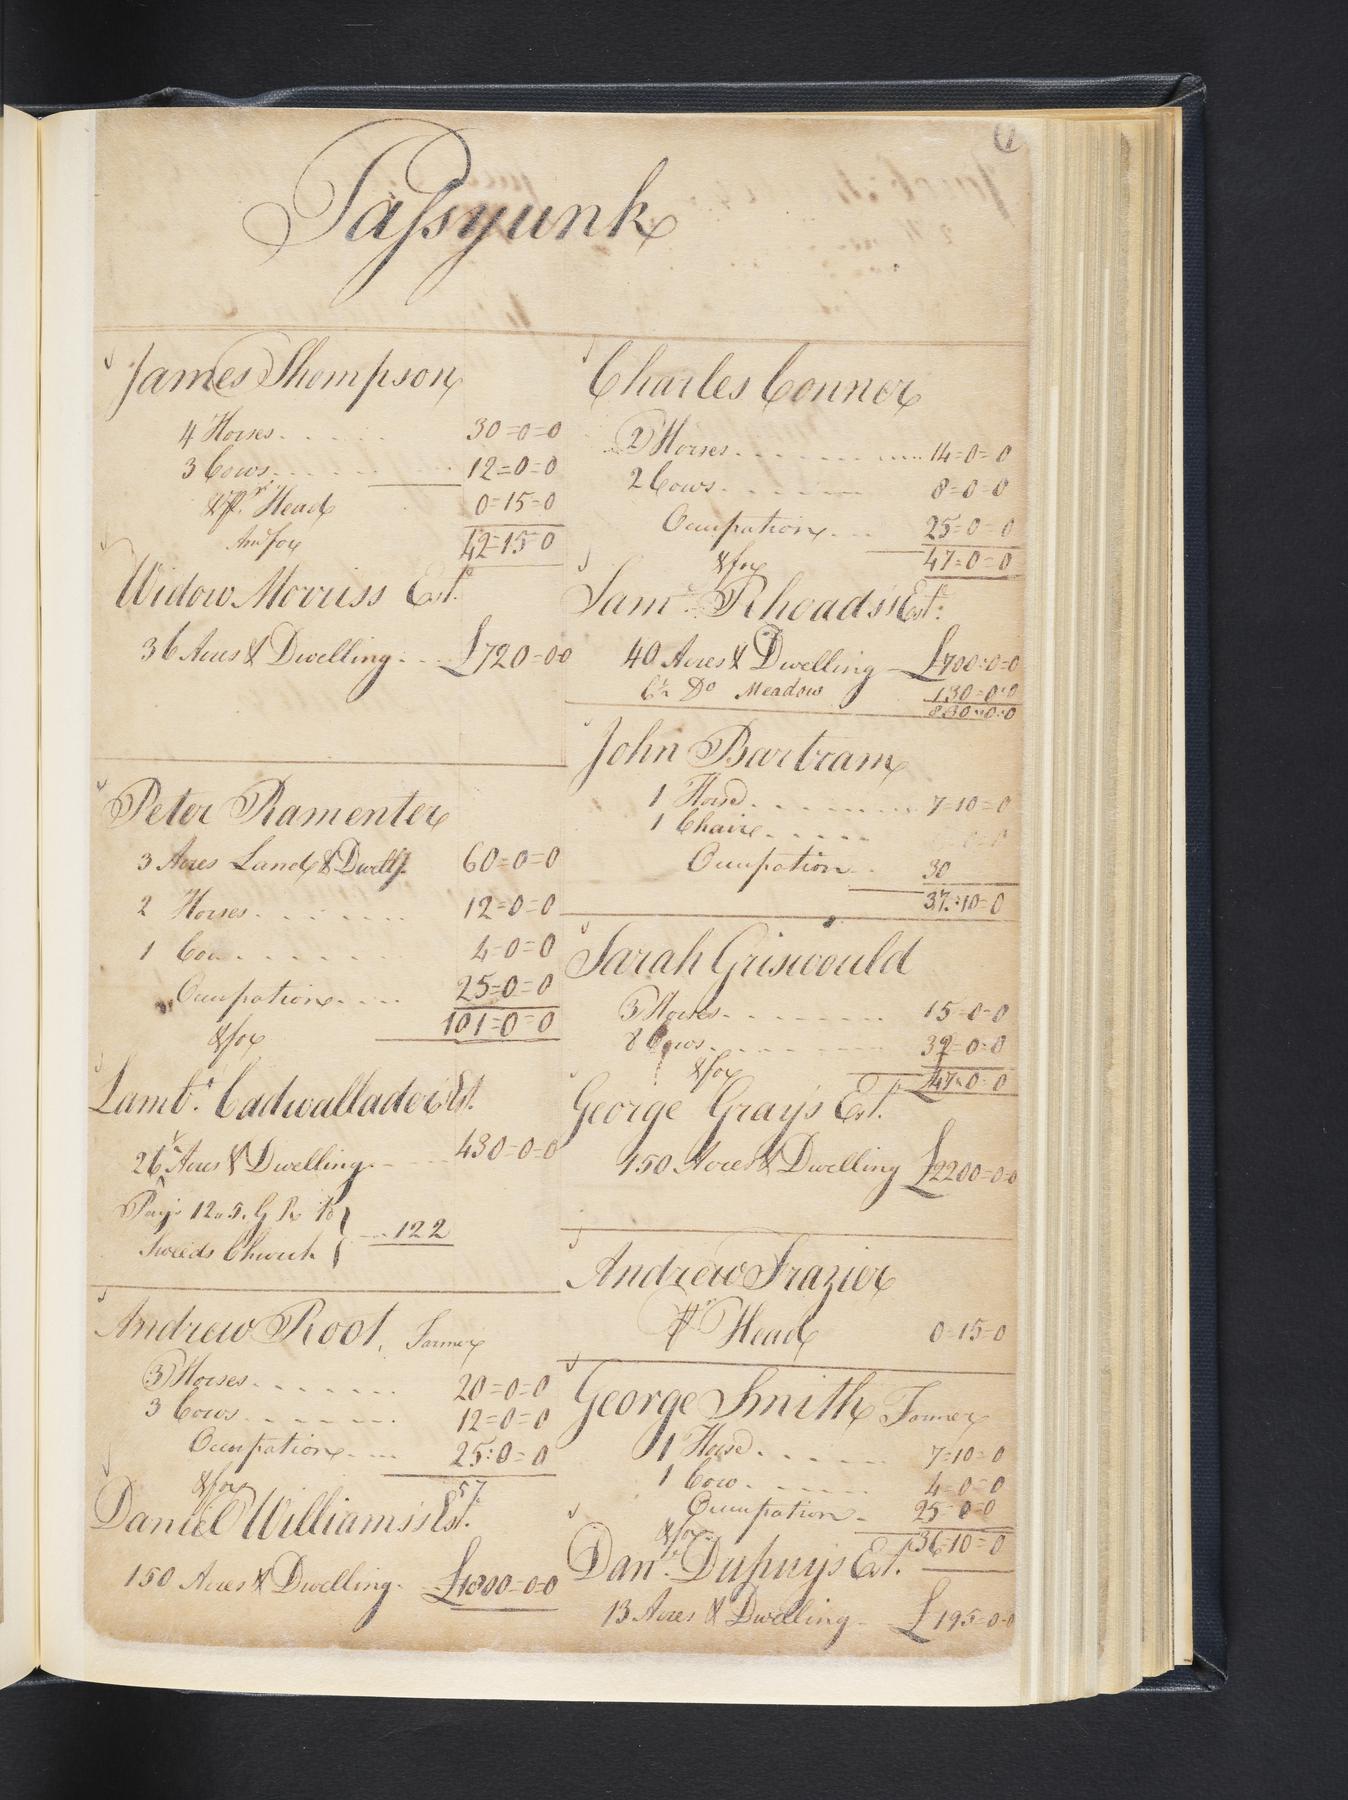 1
Passyunk
James Thompson
4 Horses 30=0=0
3 Cows 12=0=0
& pr. Head 0=15=0
42=15=0
Widow Morriss Est.
36 Acres & Dwelling £720=0=0
Peter Ramenter
3 Acres Land & Dwellg. 60=0=0
2 Horses 12=0=0
1 Cow 4=0=0
Occupation 25=0=0
& for 101=0=0
Lambt. Cadwallader Est.
26½ Acres & Dwelling 430=0=0
Pays 12..5. G Rt to
Sweeds Church } 122
Andrew Root, Farmer
3 Horses 20=0=0
3 Cows 12=0=0
Occupation 25=0=0
& for 57
Daniel Williams's Est.
150 Acres & Dwelling £1800=0=0
Charles Conner
2 Horses 14=0=0
2 Cows 8=0=0
Occupation 25=0=0
& for 47=0=0
Saml. Rhoads's Est.
40 Acres & Dwelling £700=0=0
6½ Do Meadow 130=0=0
830=0=0
John Bartram
1 Horse 7=10=0
1 Chaire
Occupation 30
37=10=0
Sarah Griswould
3 Horses 15=0=0
8 Cows 32=0=0
& for 47=0=0
George Gray's Est.
150 Acres & Dwelling £2200=0=0
Andrew Frazier
pr Head 0=15=0
George Smith Farmer
1 Horse 7=10=0
1 Cow 4=0=0
Occupation 25=0=0
& for 36=10=0
Danl. Dupuy's Est.
13 Acres & Dwelling £195=0=0